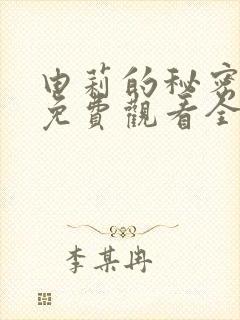 由莉的秘密
免費觀看全
李某冉